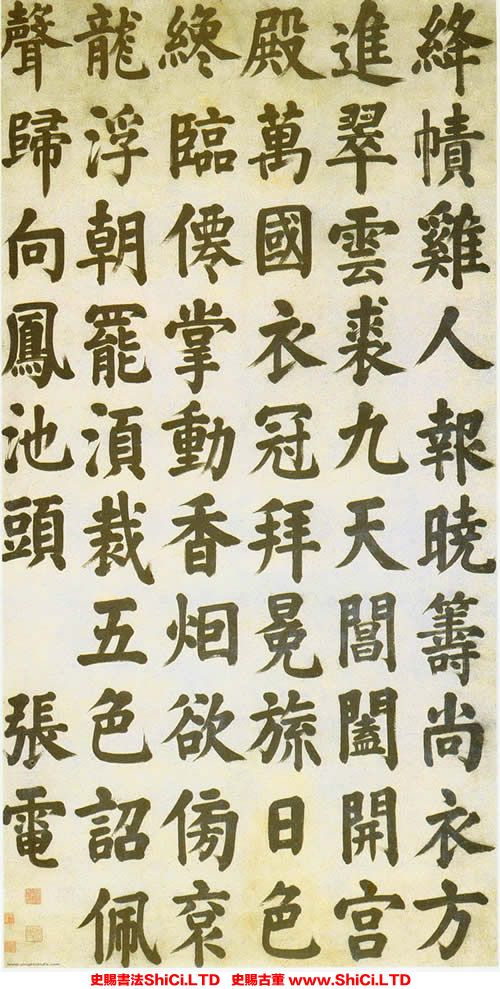 絳幘雞人報曉籌尚衣方
進翠雲裘九天閶闔開宮
殿萬國衣冠拜冕旒日色
纔臨僊掌動香烟欲傍袞
龍浮朝罷須裁五色詔佩
聲歸向鳳池頭
張電
史賜書法ShiCi.LTD 史賜古董 www.ShiCi.LTD